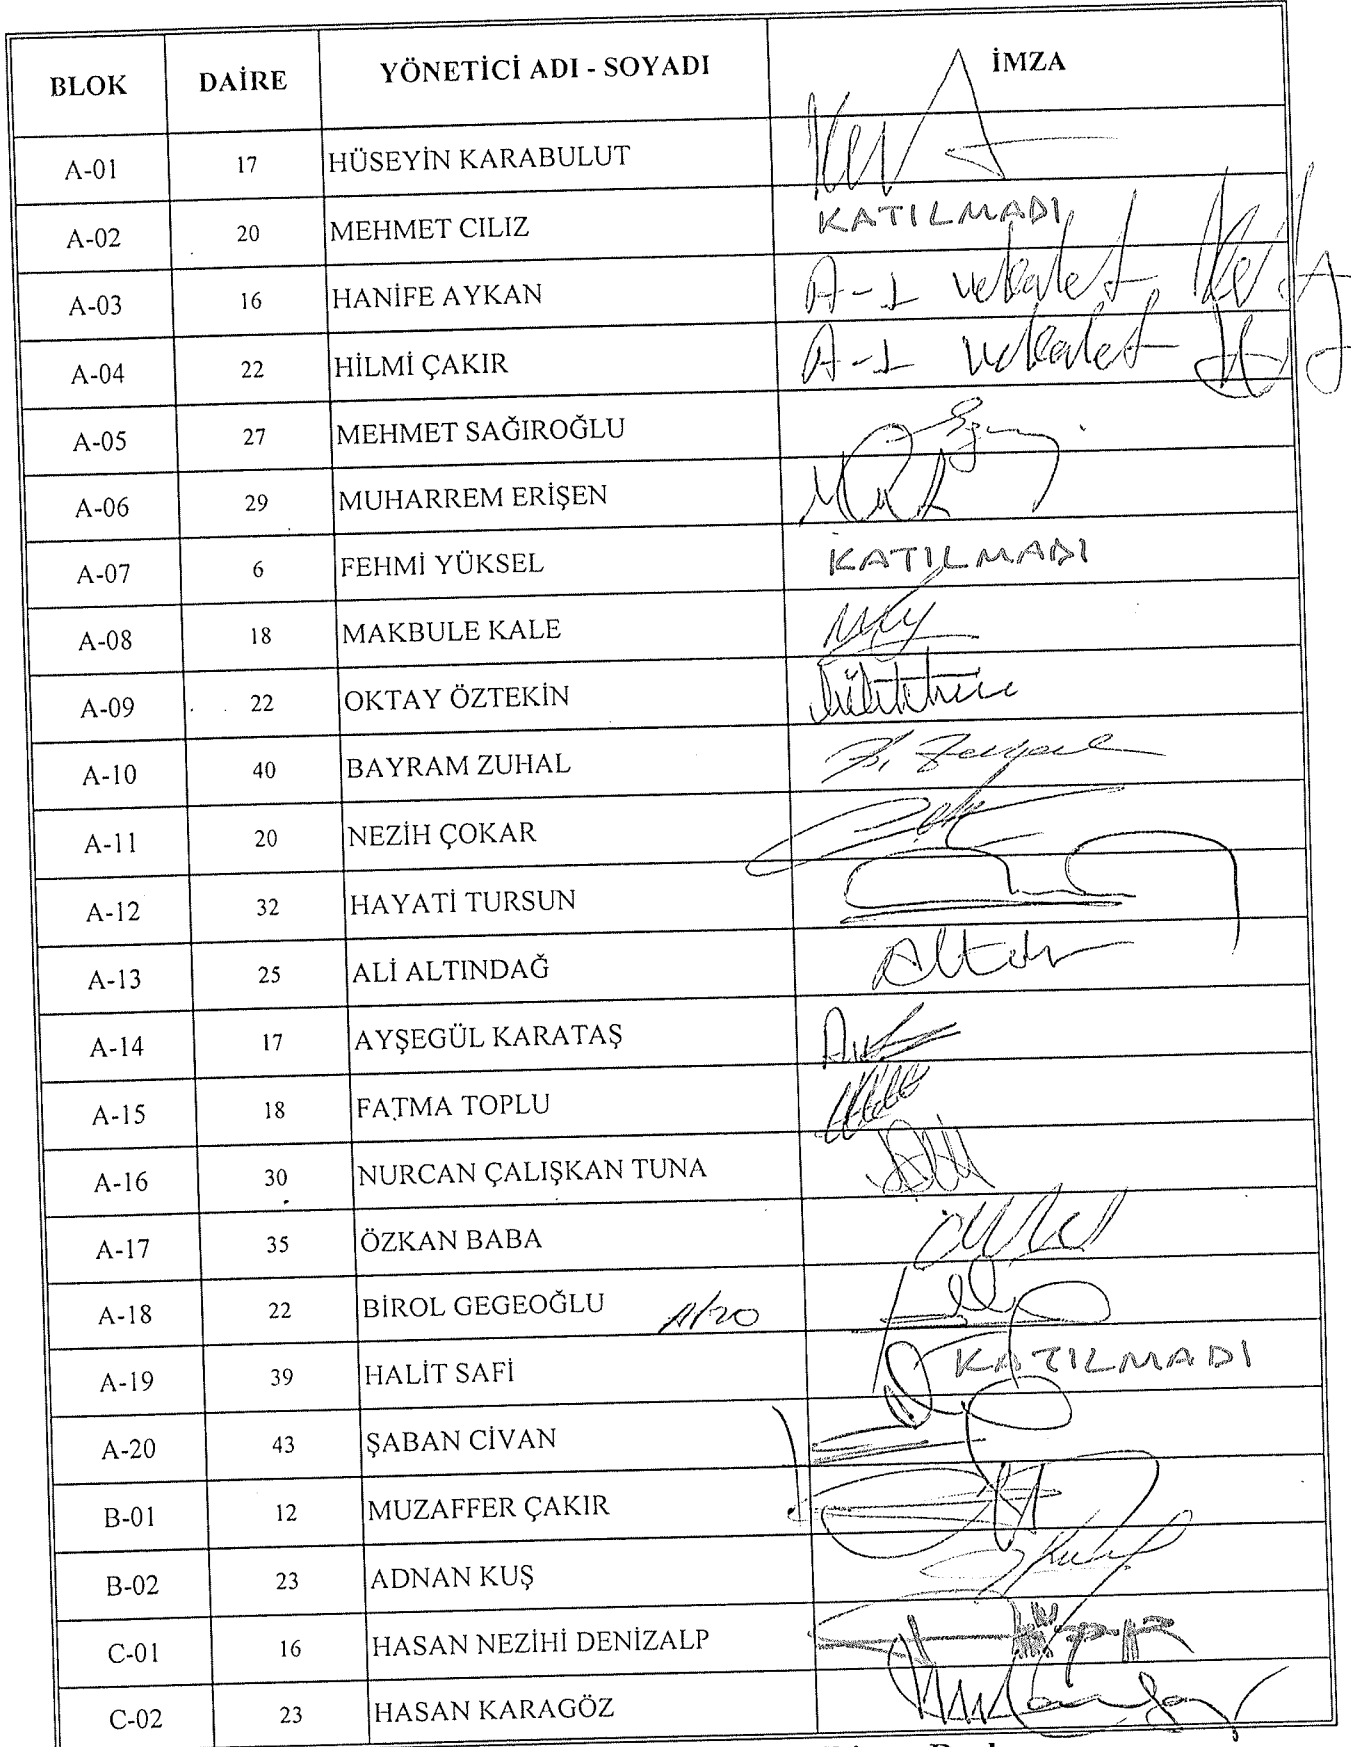 BLOK DAİRE YÖNETİCİ ADI - SOYADI İMZA
A-01 17 HÜSEYİN KARABULUT
A-02 20 MEHMET CILIZ KATILMADI
A-03 16 HANİFE AYKAN A-1 vekalet
A-04 22 HİLMİ ÇAKIR A-1 vekalet
A-05 27 MEHMET SAĞIROĞLU
A-06 29 MUHARREM ERİŞEN
A-07 6 FEHMİ YÜKSEL KATILMADI
A-08 18 MAKBULE KALE
A-09 22 OKTAY ÖZTEKİN
A-10 40 BAYRAM ZUHAL
A-11 20 NEZİH ÇOKAR
A-12 32 HAYATİ TURSUN
A-13 25 ALİ ALTINDAĞ
A-14 17 AYŞEGÜL KARATAŞ
A-15 18 FATMA TOPLU
A-16 30 NURCAN ÇALIŞKAN TUNA
A-17 35 ÖZKAN BABA
A-18 22 BİROL GEGEOĞLU
A-19 39 HALİT SAFİ KATILMADI
A-20 43 ŞABAN CİVAN
B-01 12 MUZAFFER ÇAKIR
B-02 23 ADNAN KUŞ
C-01 16 HASAN NEZİHİ DENİZALP
C-02 23 HASAN KARAGÖZ